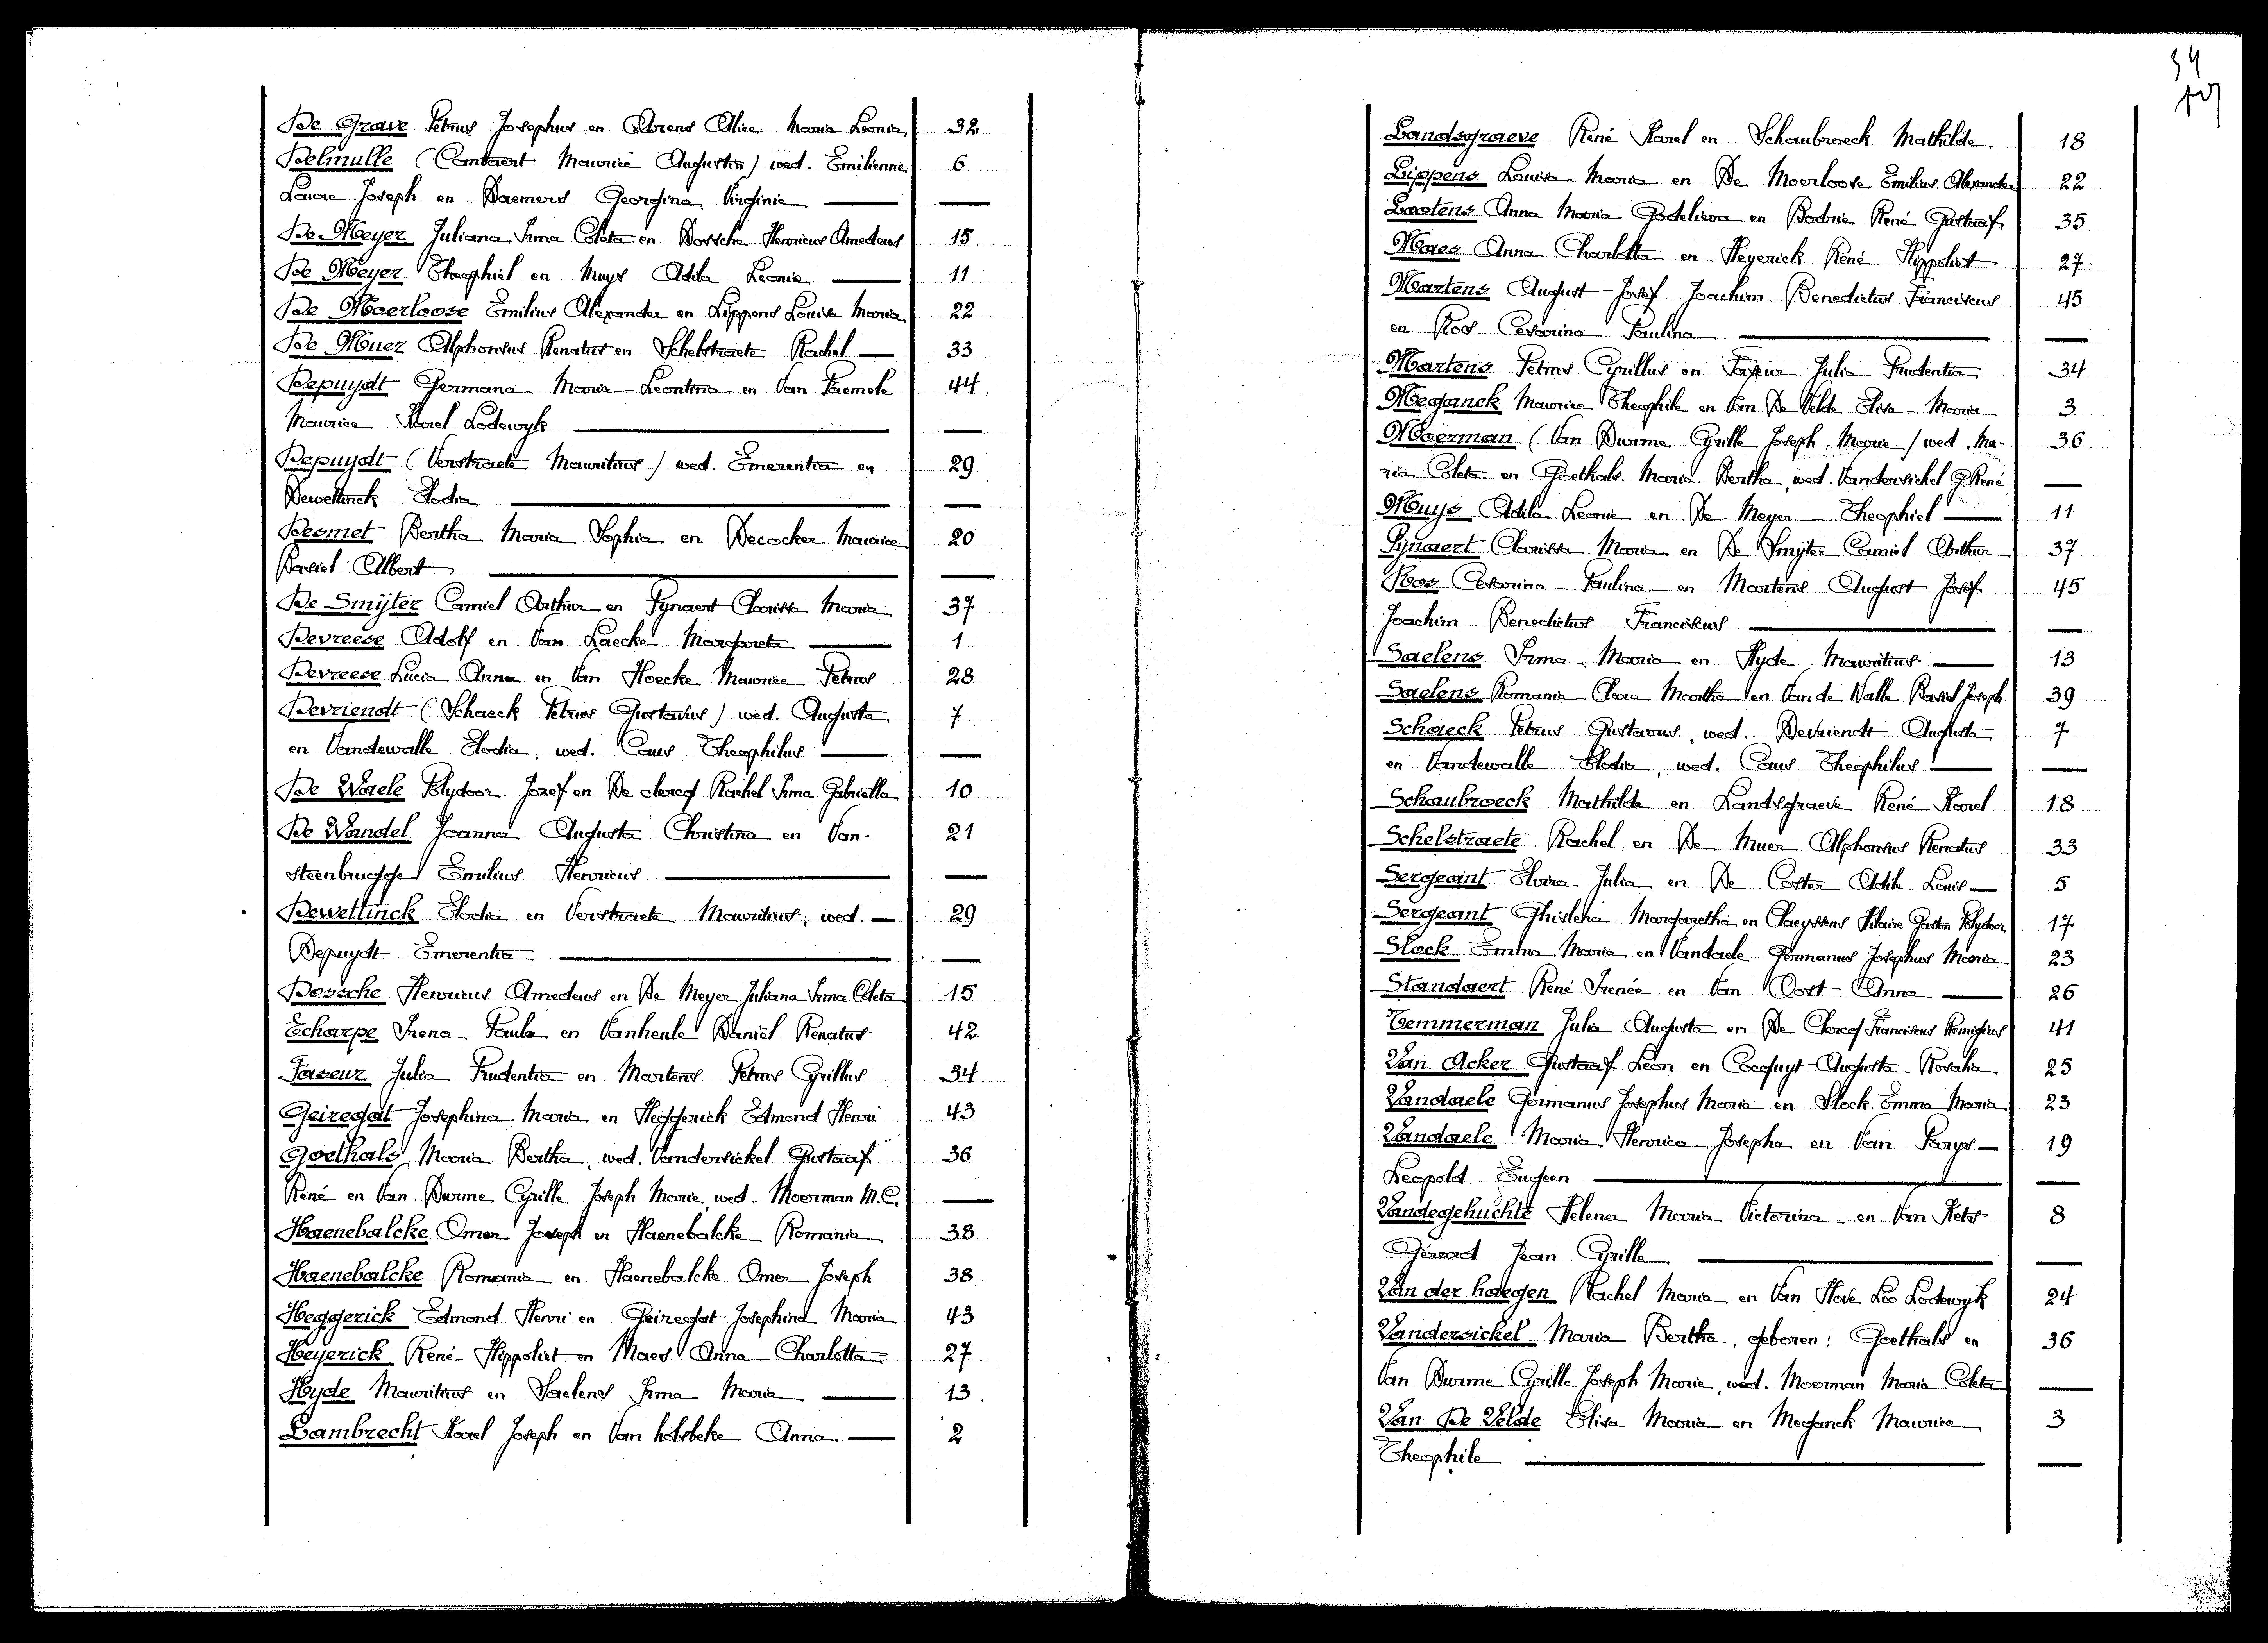 De Grave Petrus Josephus en Arens Alice Maria Leonia 32
Delmulle (Cantaert Maurice Augustin) wed. Emilienne 6
Laure Joseph en Daemers Georgina Virginie —
De Meyer Juliana Irma Coleta en Dossche Henricus Amedeus 15
De Meyer Theophiel en Muys Adila Leonie — 11
De Moerloose Emilius Alexander en Lippens Louisa Maria 22
De Muer Alphonsus Renatus en Schelstraete Rachel — 33
Depuydt Germana Maria Leontina en Van Paemele 44
Maurice Karel Lodewyk —
Depuydt (Verstraete Mauritius) wed. Emerentia en 29
Dewettinck Elodia —
Desmet Bertha Maria Sophia en Decocker Maurice 20
Basiel Albert —
De Smijter Camiel Arthur en Pynaert Clarissa Maria 37
Devreese Adolf en Van Laecke Margareta — 1
Devreese Lucia Anna en Van Hoecke Maurice Petrus 28
Devriendt (Schaeck Petrus Gustavus) wed. Augusta 7
en Vandewalle Elodia, wed. Caus Theophilus —
De Waele Polydoor Jozef en De clercq Rachel Irma Gabriella 10
De Wandel Joanna Augusta Christina en Van- 21
steenbrugghe Emilius Henricus —
Dewettinck Elodia en Verstraete Mauritius, wed. — 29
Depuydt Emerentia —
Dossche Henricus Amedeus en De Meyer Juliana Irma Coleta 15
Echarpe Irena Paula en Vanheule Daniël Renatus 42
Faseur Julia Prudentia en Martens Petrus Cyrillus 34
Geiregat Josephina Maria en Heggerick Edmond Henri 43
Goethals Maria Bertha, wed. Vandersickel Gustaaf 36
René en Van Durme Cyrille Joseph Marie, wed. Moerman M.C. —
Haenebalcke Omer Joseph en Haenebalcke Romania 38
Haenebalcke Romania en Haenebalcke Omer Joseph 38
Heggerick Edmond Henri en Geiregat Josephina Maria 43
Heyerick René Hippoliet en Maes Anna Charlotta 27
Hyde Mauritius en Saelens Irma Maria — 13
Lambrecht Karel Joseph en Van holsbeke Anna — 2
34
Landsgraeve René Karel en Schaubroeck Mathilde 18
Lippens Louisa Maria en De Moerloose Emilius Alexander 22
Lootens Anna Maria Godelieva en Bodrie René Gustaaf 35
Maes Anna Charlotta en Heyerick René Hippoliet 27
Martens August Josef Joachim Benedictus Franciscus 45
en Roos Cesarina Paulina —
Martens Petrus Cyrillus en Faseur Julia Prudentia 34
Meganck Maurice Theophile en Van De Velde Elisa Maria 3
Moerman (Van Durme Cyrille Joseph Marie) wed. Ma- 36
ria Coleta en Goethals Maria Bertha, wed. Vandersickel G. René —
Muys Adila Leonie en De Meyer Theophiel — 11
Pynaert Clarissa Maria en De Smijter Camiel Arthur 37
Roos Cesarina Paulina en Martens August Josef 45
Joachim Benedictus Franciscus —
Saelens Irma Maria en Hyde Mauritius — 13
Saelens Romania Clara Martha en Van de Walle Basiel Joseph 39
Schaeck Petrus Gustavus, wed. Devriendt Augusta 7
en Vandewalle Elodia, wed. Caus Theophilus —
Schaubroeck Mathilde en Landsgraeve René Karel 18
Schelstraete Rachel en De Muer Alphonsus Renatus 33
Sergeant Elvira Julia en De Coster Odile Louis — 5
Sergeant Ghislena Margaretha en Claeyssens Hilaire Gaston Polydoor 17
Slock Emma Maria en Vandaele Germanus Josephus Maria 23
Standaert René Irenée en Van Oost Anna — 26
Temmerman Julia Augusta en De Clercq Franciscus Remigius 41
Van Acker Gustaaf Leon en Cocquyt Augusta Rosalia 25
Vandaele Germanus Josephus Maria en Slock Emma Maria 23
Vandaele Maria Henrica Josepha en Van Parys — 19
Leopold Eugeen —
Vandegehuchte Helena Maria Victorina en Van Hets 8
Gérard Jean Cyrille —
Van der haegen Rachel Maria en Van Hove Leo Lodewyk 24
Vandersickel Maria Bertha, geboren: Goethals en 36
Van Durme Cyrille Joseph Marie, wed. Moerman Maria Coleta —
Van De Velde Elisa Maria en Meganck Maurice 3
Theophile —